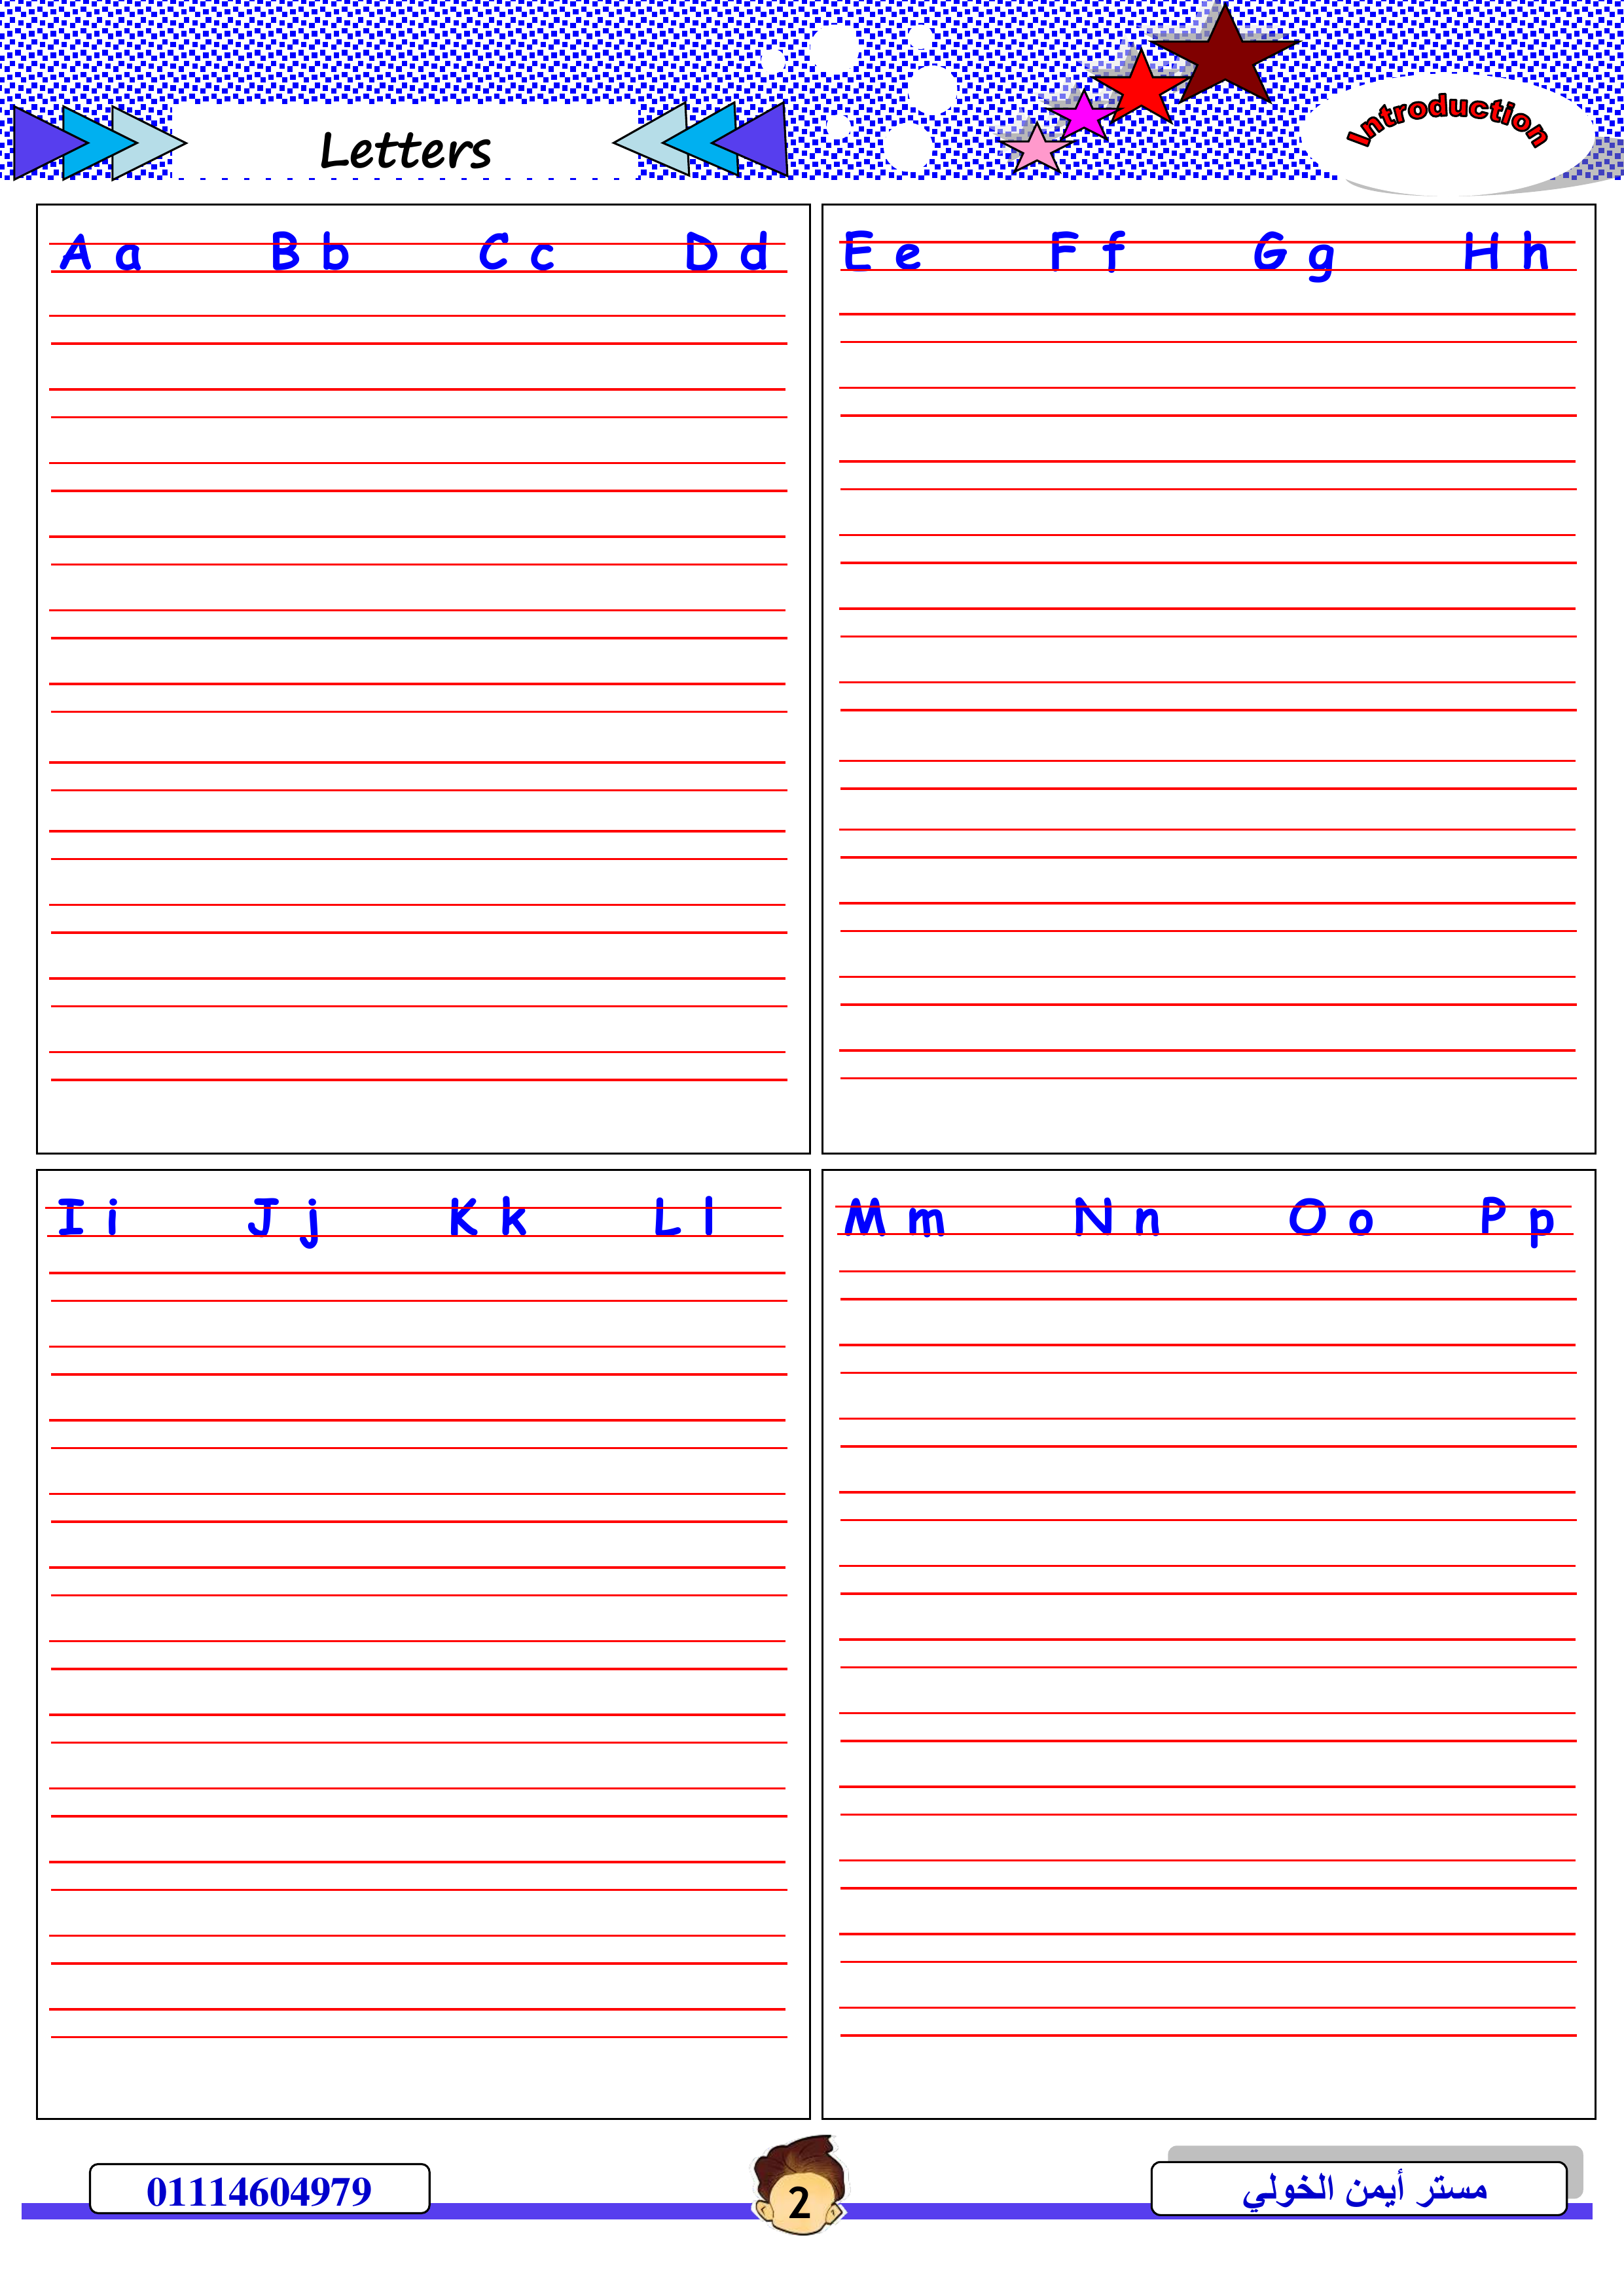 Letters
Introduction
A a B b C c D d
E e F f G g H h
I i J j K k L l
M m N n O o P p
01114604979
2
مستر أيمن الخولي